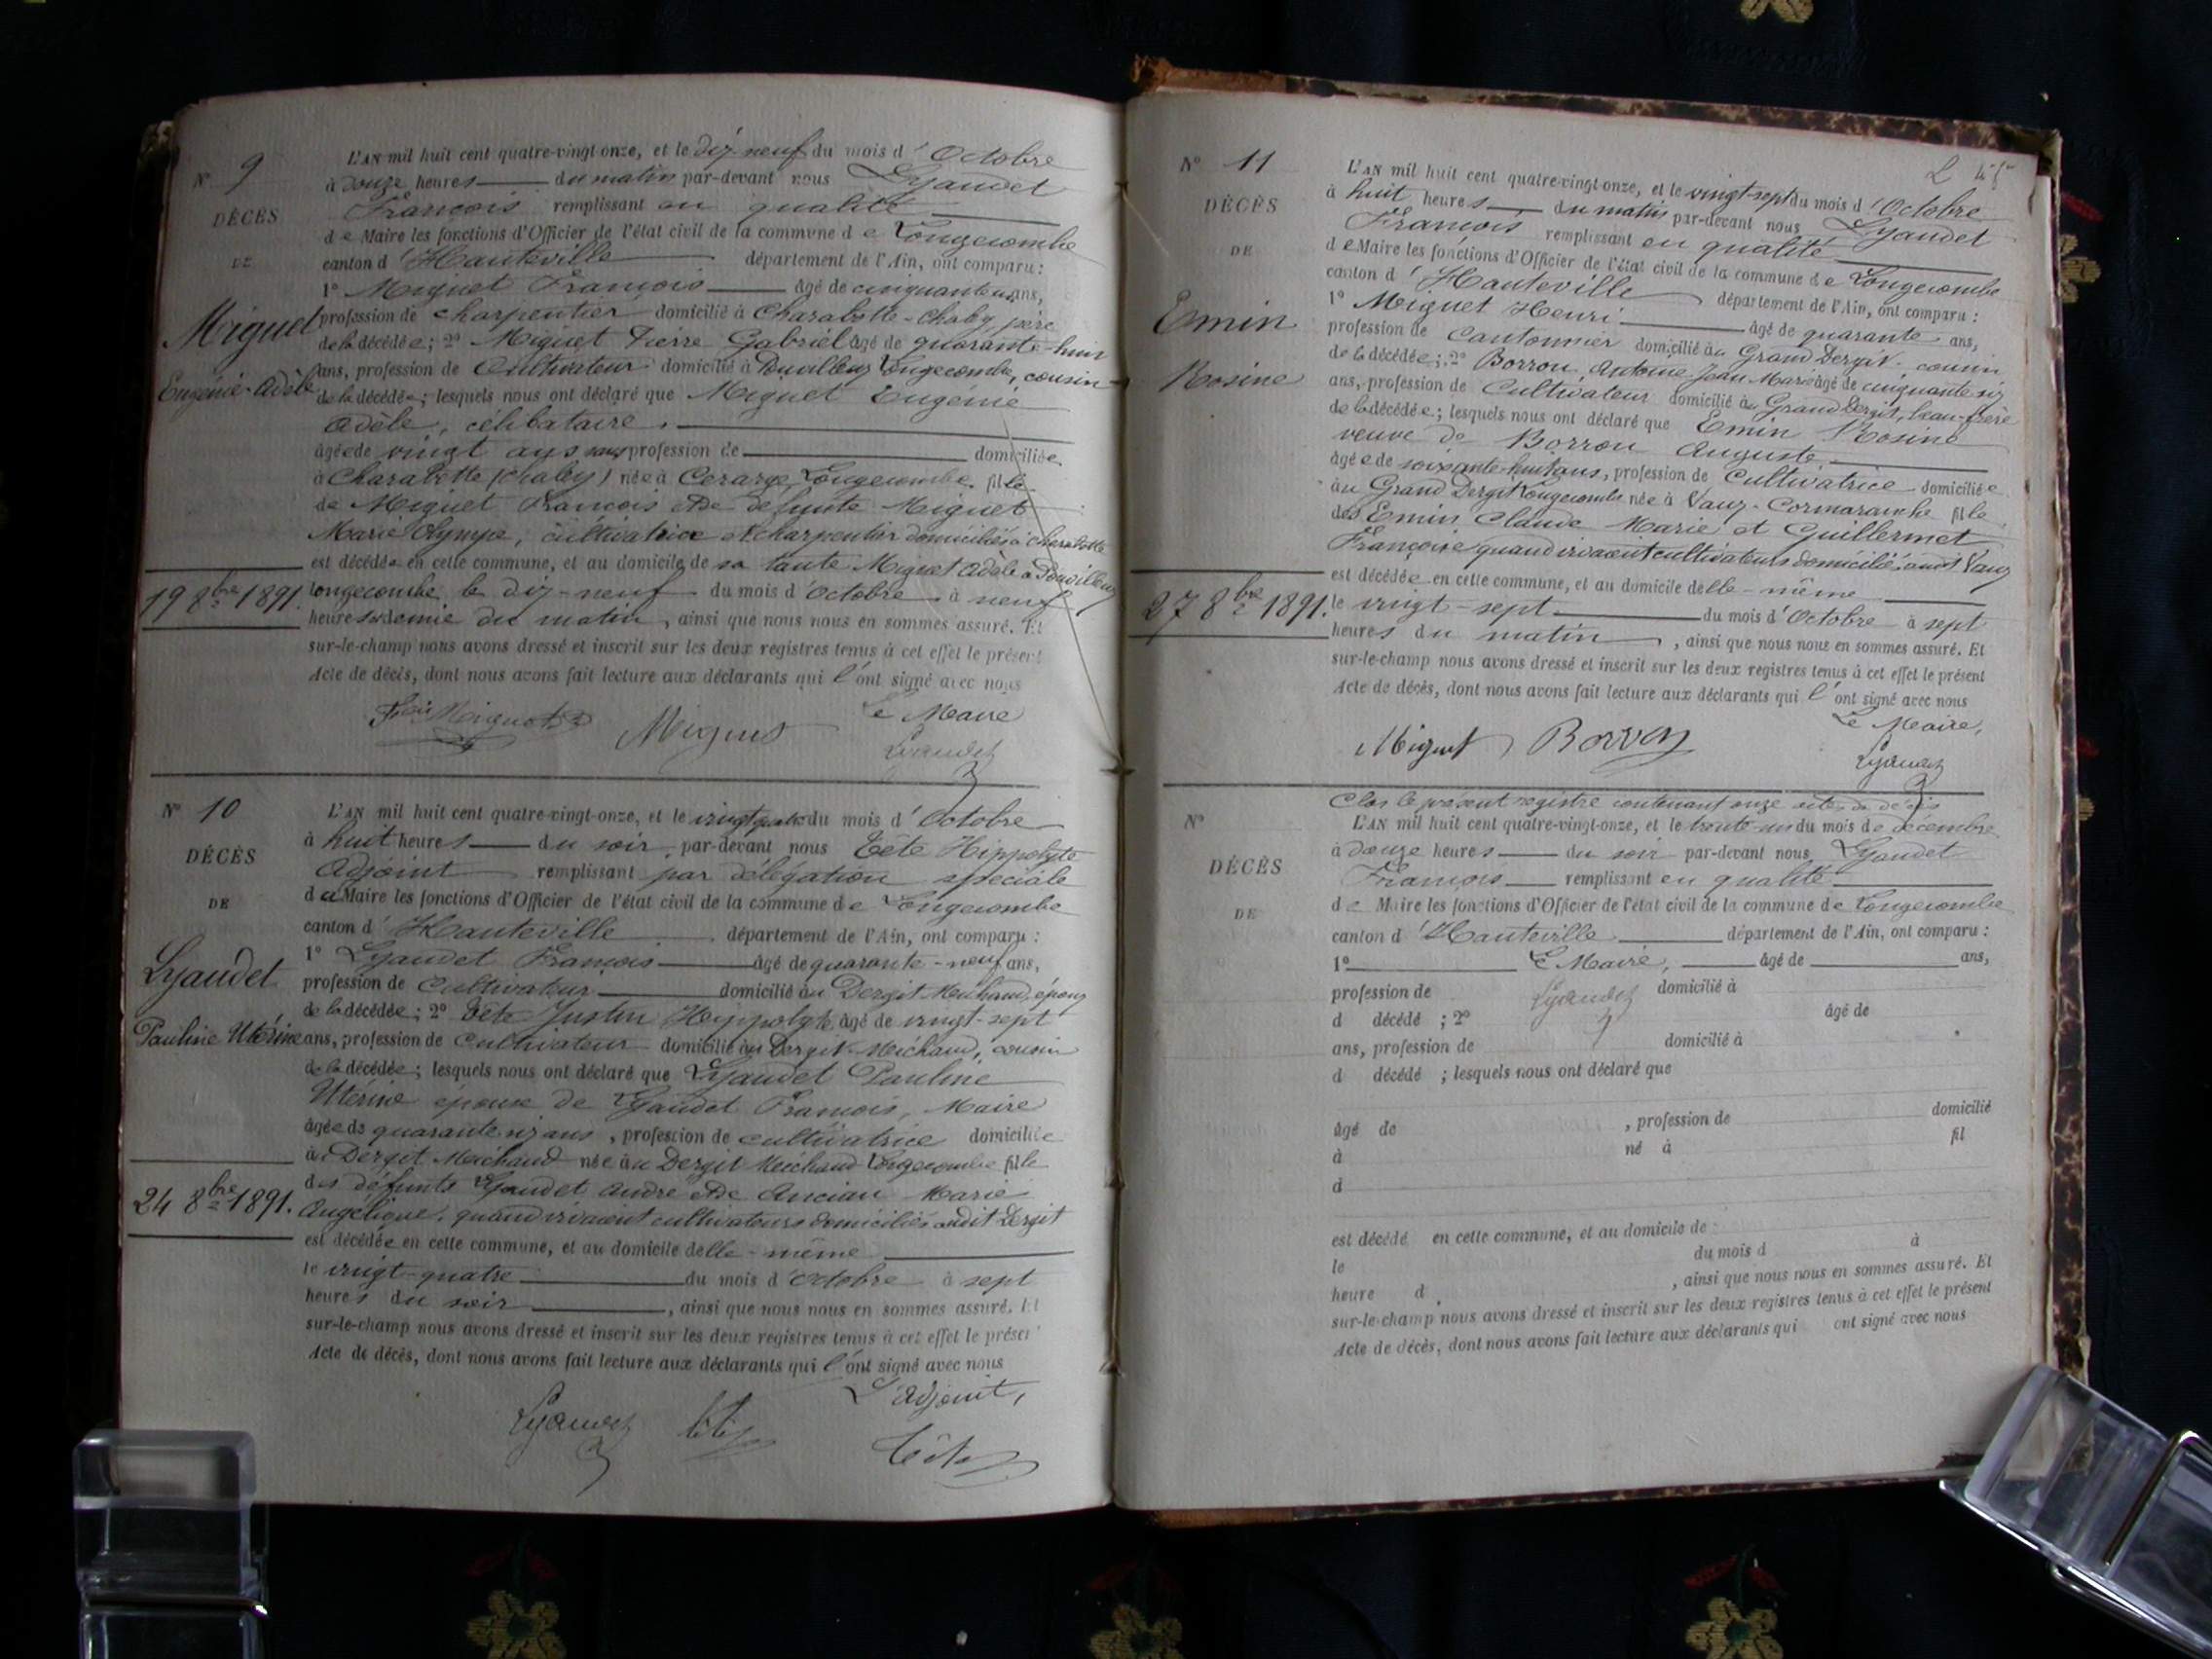 N° 9
DÉCÈS
DE
Miguet
Eugénie-Adèle
19 8bre 1891.
L'AN mil huit cent quatre-vingt-onze, et le dix-neuf du mois d'Octobre
à douze heures du matin par-devant nous Lyaudet
François remplissant en qualité
de Maire les fonctions d'Officier de l'état civil de la commune de Longecombe
canton d'Hauteville département de l'Ain, ont comparu :
1° Miguet François âgé de cinquante un ans,
profession de charpentier domicilié à Charabotte-Chaley, père
de la décédée ; 2° Miguet Pierre Gabriel âgé de quarante-huit
ans, profession de Cultivateur domicilié à Longecombe, cousin
de la décédée ; lesquels nous ont déclaré que Miguet Eugénie
Adèle, célibataire,
âgée de vingt ans sans profession de domiciliée
à Charabotte (Chaley) née à Longecombe, fille
de Miguet François et de défunte Miguet
Marie Olympe, cultivatrice et charpentier domiciliés à Charabotte
est décédée en cette commune, et au domicile de sa tante Miguet Adèle à
Longecombe, le dix-neuf du mois d'Octobre à neuf
heures et demie du matin, ainsi que nous nous en sommes assuré. Et
sur-le-champ nous avons dressé et inscrit sur les deux registres tenus à cet effet le présent
Acte de décès, dont nous avons fait lecture aux déclarants qui l'ont signé avec nous
Le Maire
Lyaudet
N° 10
DÉCÈS
DE
Lyaudet
Pauline Utérine
24 8bre 1891.
L'AN mil huit cent quatre-vingt-onze, et le vingt quatre du mois d'Octobre
à huit heures du soir, par-devant nous Tête Hippolyte
Adjoint remplissant par délégation spéciale
du Maire les fonctions d'Officier de l'état civil de la commune de Longecombe
canton d'Hauteville département de l'Ain, ont comparu :
1° Lyaudet François âgé de quarante-neuf ans,
profession de Cultivateur domicilié au Dergit Michaud, époux
de la décédée ; 2° Tête Justin Hippolyte âgé de vingt-sept
ans, profession de Cultivateur domicilié au Dergit Michaud, cousin
de la décédée ; lesquels nous ont déclaré que Lyaudet Pauline
Utérine épouse de Lyaudet François, Maire
âgée de quarante six ans, profession de cultivatrice domiciliée
au Dergit Michaud née au Dergit Michaud Longecombe fille
des défunts Lyaudet André et de Ancian Marie
Angélique, quand vivaient cultivateurs domiciliés audit Dergit
est décédée en cette commune, et au domicile d'elle-même
le vingt-quatre du mois d'Octobre à sept
heures du soir, ainsi que nous nous en sommes assuré. Et
sur-le-champ nous avons dressé et inscrit sur les deux registres tenus à cet effet le présent
Acte de décès, dont nous avons fait lecture aux déclarants qui l'ont signé avec nous
L'Adjoint,
Lyaudet Tête Tête
N° 11
DÉCÈS
DE
Emin
Rosine
27 8bre 1891.
L'AN mil huit cent quatre-vingt-onze, et le vingt-sept du mois d'Octobre
à huit heures du matin par-devant nous Lyaudet
François remplissant en qualité
de Maire les fonctions d'Officier de l'état civil de la commune de Longecombe
canton d'Hauteville département de l'Ain, ont comparu :
1° Miguet Henri âgé de quarante ans,
profession de Cantonnier domicilié au Grand Dergit, cousin
de la décédée ; 2° Borron Antoine Jean Marie âgé de cinquante six
ans, profession de Cultivateur domicilié au Grand Dergit, beau-frère
de la décédée ; lesquels nous ont déclaré que Emin Rosine
veuve de Borron Auguste
âgée de soixante-huit ans, profession de Cultivatrice domiciliée
au Grand Dergit Longecombe née à Vaux-Cormaranche fille
des Emin Claude Marie et Guillermet
Françoise quand vivaient cultivateurs domiciliés audit Vaux
est décédée en cette commune, et au domicile d'elle-même
le vingt-sept du mois d'Octobre à sept
heures du matin, ainsi que nous nous en sommes assuré. Et
sur-le-champ nous avons dressé et inscrit sur les deux registres tenus à cet effet le présent
Acte de décès, dont nous avons fait lecture aux déclarants qui l'ont signé avec nous
Le Maire,
Miguet Borron Lyaudet
N°
DÉCÈS
DE
Clos le présent registre contenant onze actes de décès
L'AN mil huit cent quatre-vingt-onze, et le trente-un du mois de décembre
à douze heures du soir par-devant nous Lyaudet
François remplissant en qualité
de Maire les fonctions d'Officier de l'état civil de la commune de Longecombe
canton d'Hauteville département de l'Ain, ont comparu :
1° Le Maire, âgé de ans,
profession de Lyaudet domicilié à
d décédé ; 2° âgé de
ans, profession de domicilié à
d décédé ; lesquels nous ont déclaré que
âgé de , profession de domicilié
à né à fil
d
est décédé en cette commune, et au domicile de
le du mois d à
heure d , ainsi que nous nous en sommes assuré. Et
sur-le-champ nous avons dressé et inscrit sur les deux registres tenus à cet effet le présent
Acte de décès, dont nous avons fait lecture aux déclarants qui ont signé avec nous